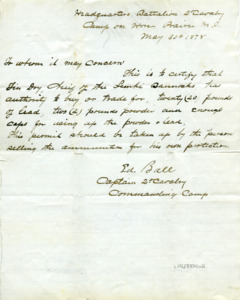 Headquarters Battalion 2d Cavalry
Camp on Horse Prairie M.T.
May 30th 1878
To whom it may concern
This is to certify that
Ten Doy Chief of the Lemhi Bannacks has
authority to buy or trade for, twenty(20) pounds
of Lead, two(2) pounds powder and enough
caps for using up the powder & lead.
This permit should be taken up by the person
selling the ammunition for his own protection
Ed. Ball
Captain 2d Cavalry
Commanding Camp